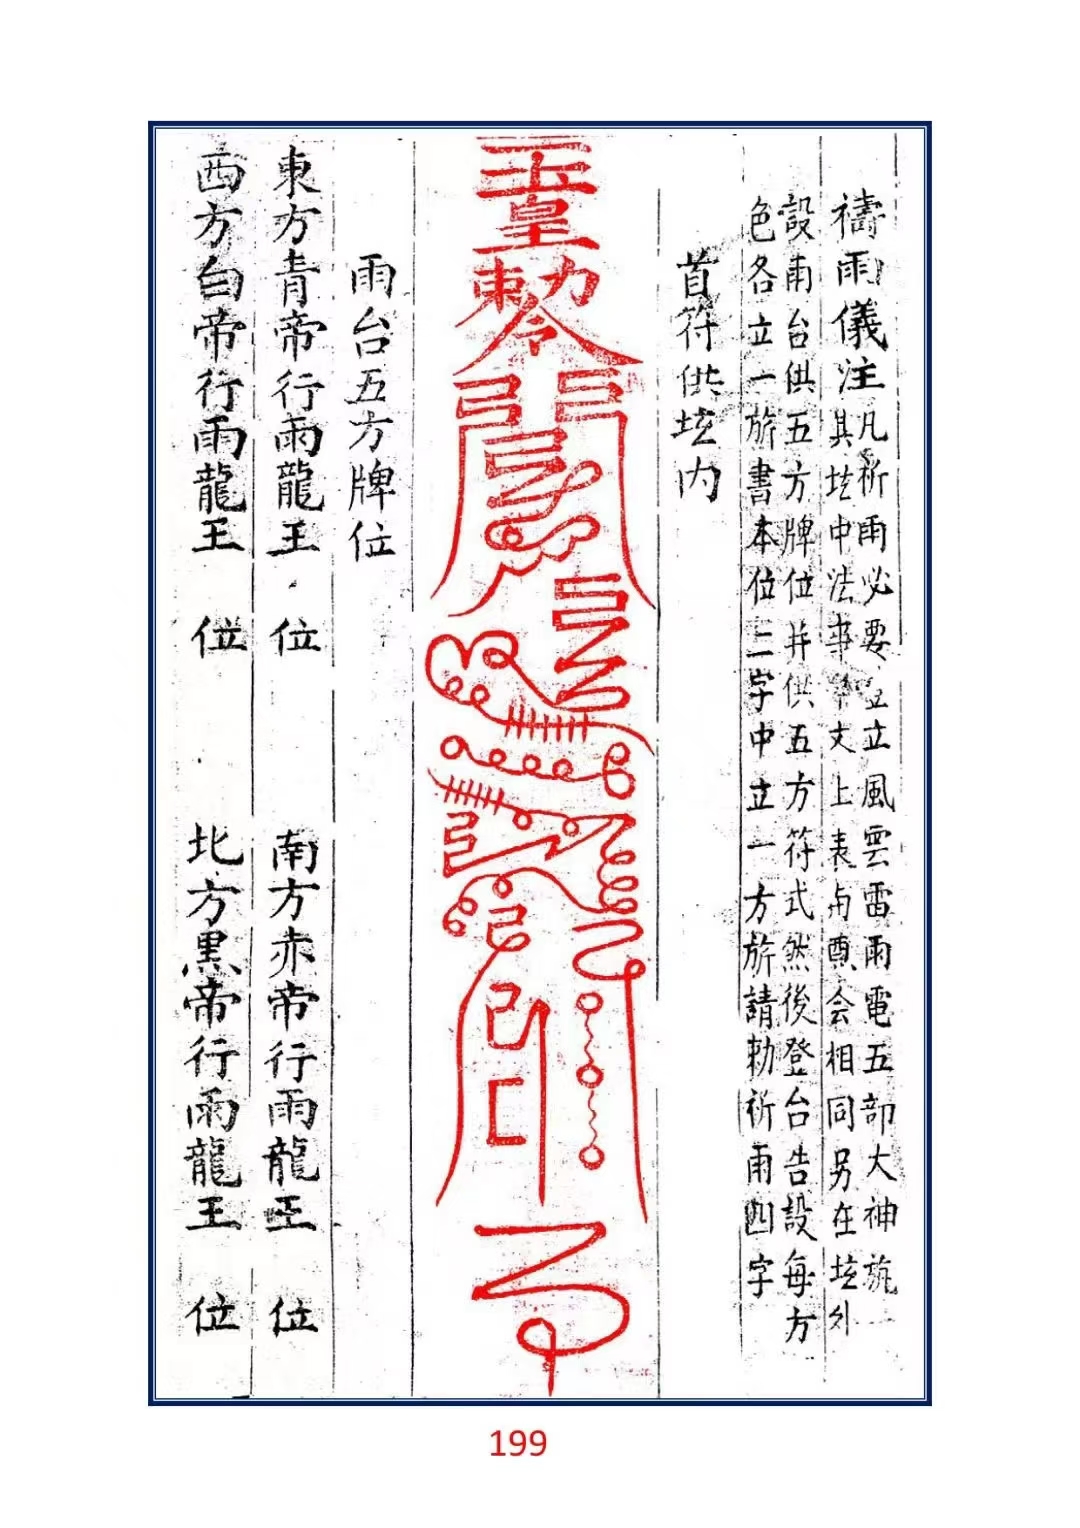 禱雨儀注
凡祈雨必要立立風雲雷雨電五部大神旂
其坛中法事文上表與奠会相同另在坛外
設雨台供五方牌位并供五方符式然後登台告設每方
色各立一旂書本位三字中立一方旂請勅祈雨四字
首符供坛内
玉皇
敕令
雨台五方牌位
東方青帝行雨龍王位
南方赤帝行雨龍王位
西方白帝行雨龍王位
北方黑帝行雨龍王位
199